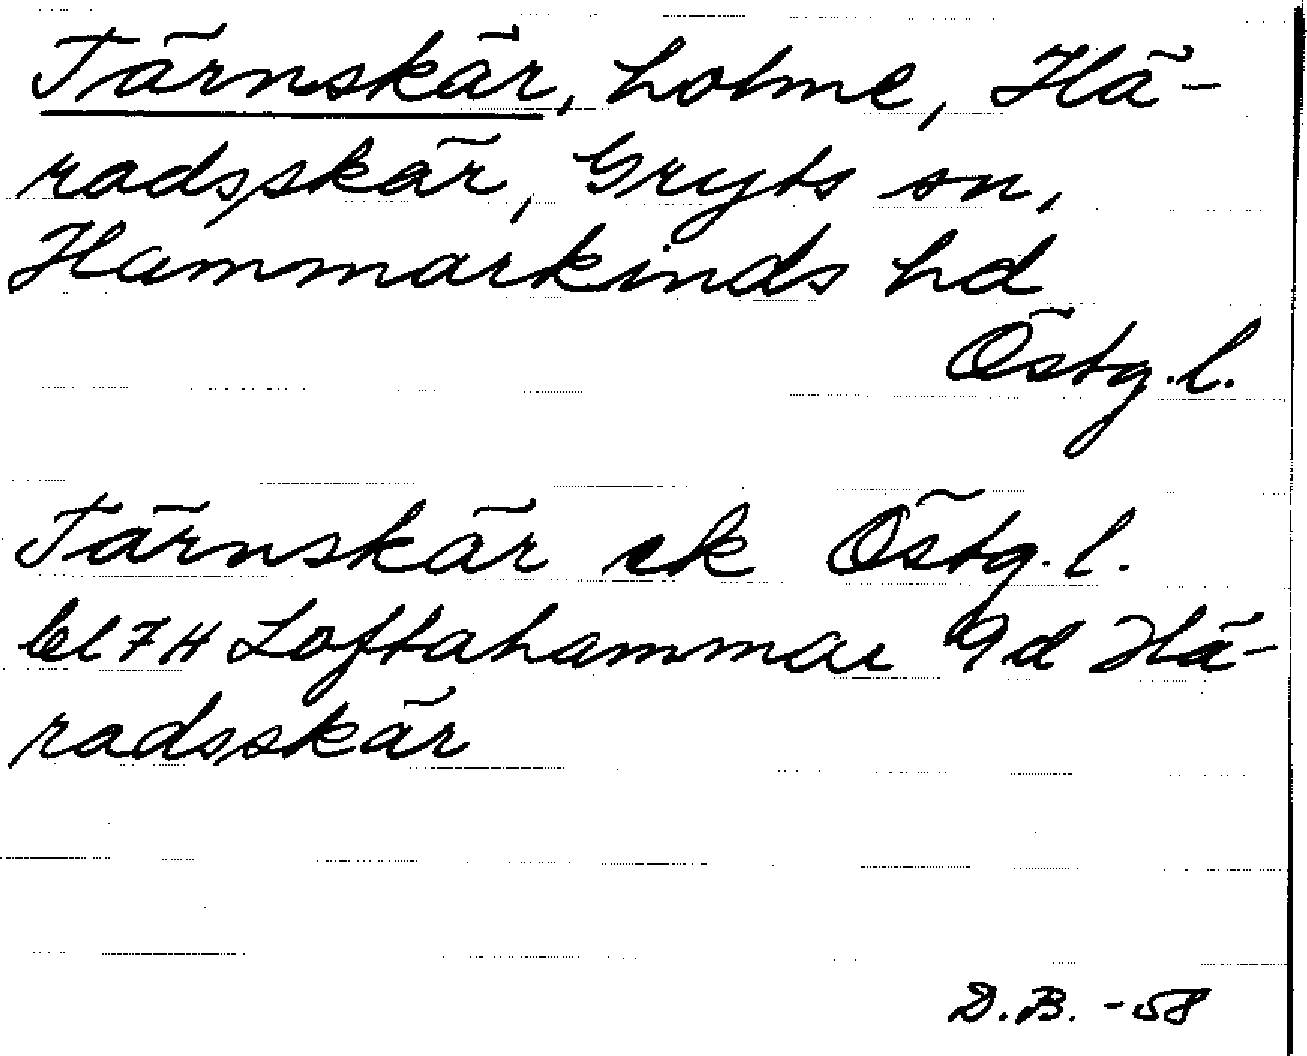 Tärnskär, holme, Hä-
radsskär, Gryts sn,
Hammarkinds hd
Östg. l.
Tärnskär ek Östg. l.
bl 7H Loftahammar 9d Hä-
radsskär
D.B. -58